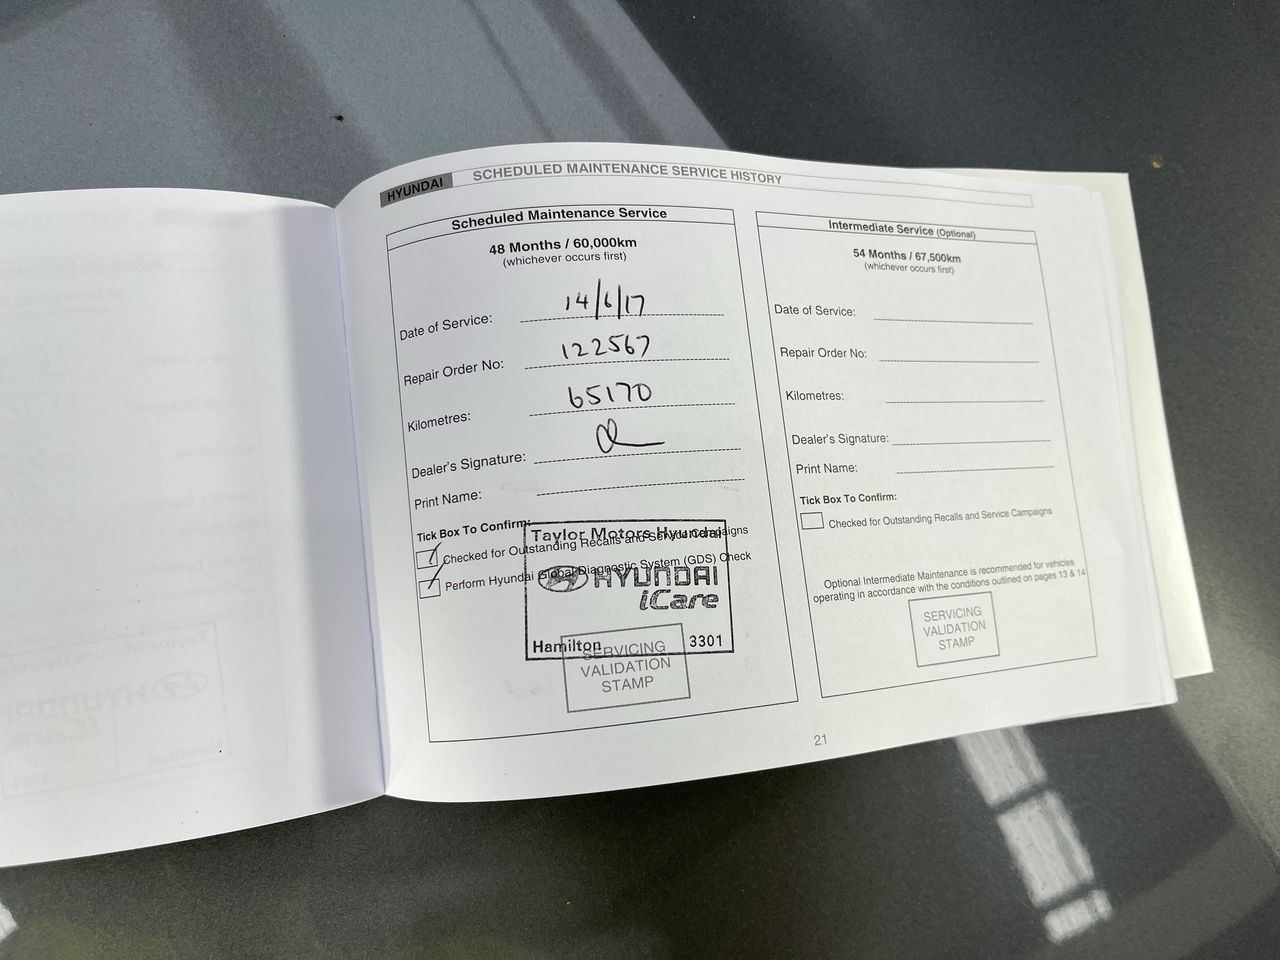 HYUNDAI
SCHEDULED MAINTENANCE SERVICE HISTORY
Scheduled Maintenance Service
48 Months / 60,000km
(whichever occurs first)
Date of Service: 14/6/17
Repair Order No: 122567
Kilometres: 65170
Dealer's Signature:
Print Name:
Tick Box To Confirm:
Checked for Outstanding Recalls and Service Campaigns
Perform Hyundai Global Diagnostic System (GDS) Check
Taylor Motors Hyundai
HYUNDAI
iCare
Hamilton 3301
SERVICING
VALIDATION
STAMP
Intermediate Service (Optional)
54 Months / 67,500km
(whichever occurs first)
Date of Service:
Repair Order No:
Kilometres:
Dealer's Signature:
Print Name:
Tick Box To Confirm:
Checked for Outstanding Recalls and Service Campaigns
Optional Intermediate Maintenance is recommended for vehicles
operating in accordance with the conditions outlined on pages 13 & 14
SERVICING
VALIDATION
STAMP
21